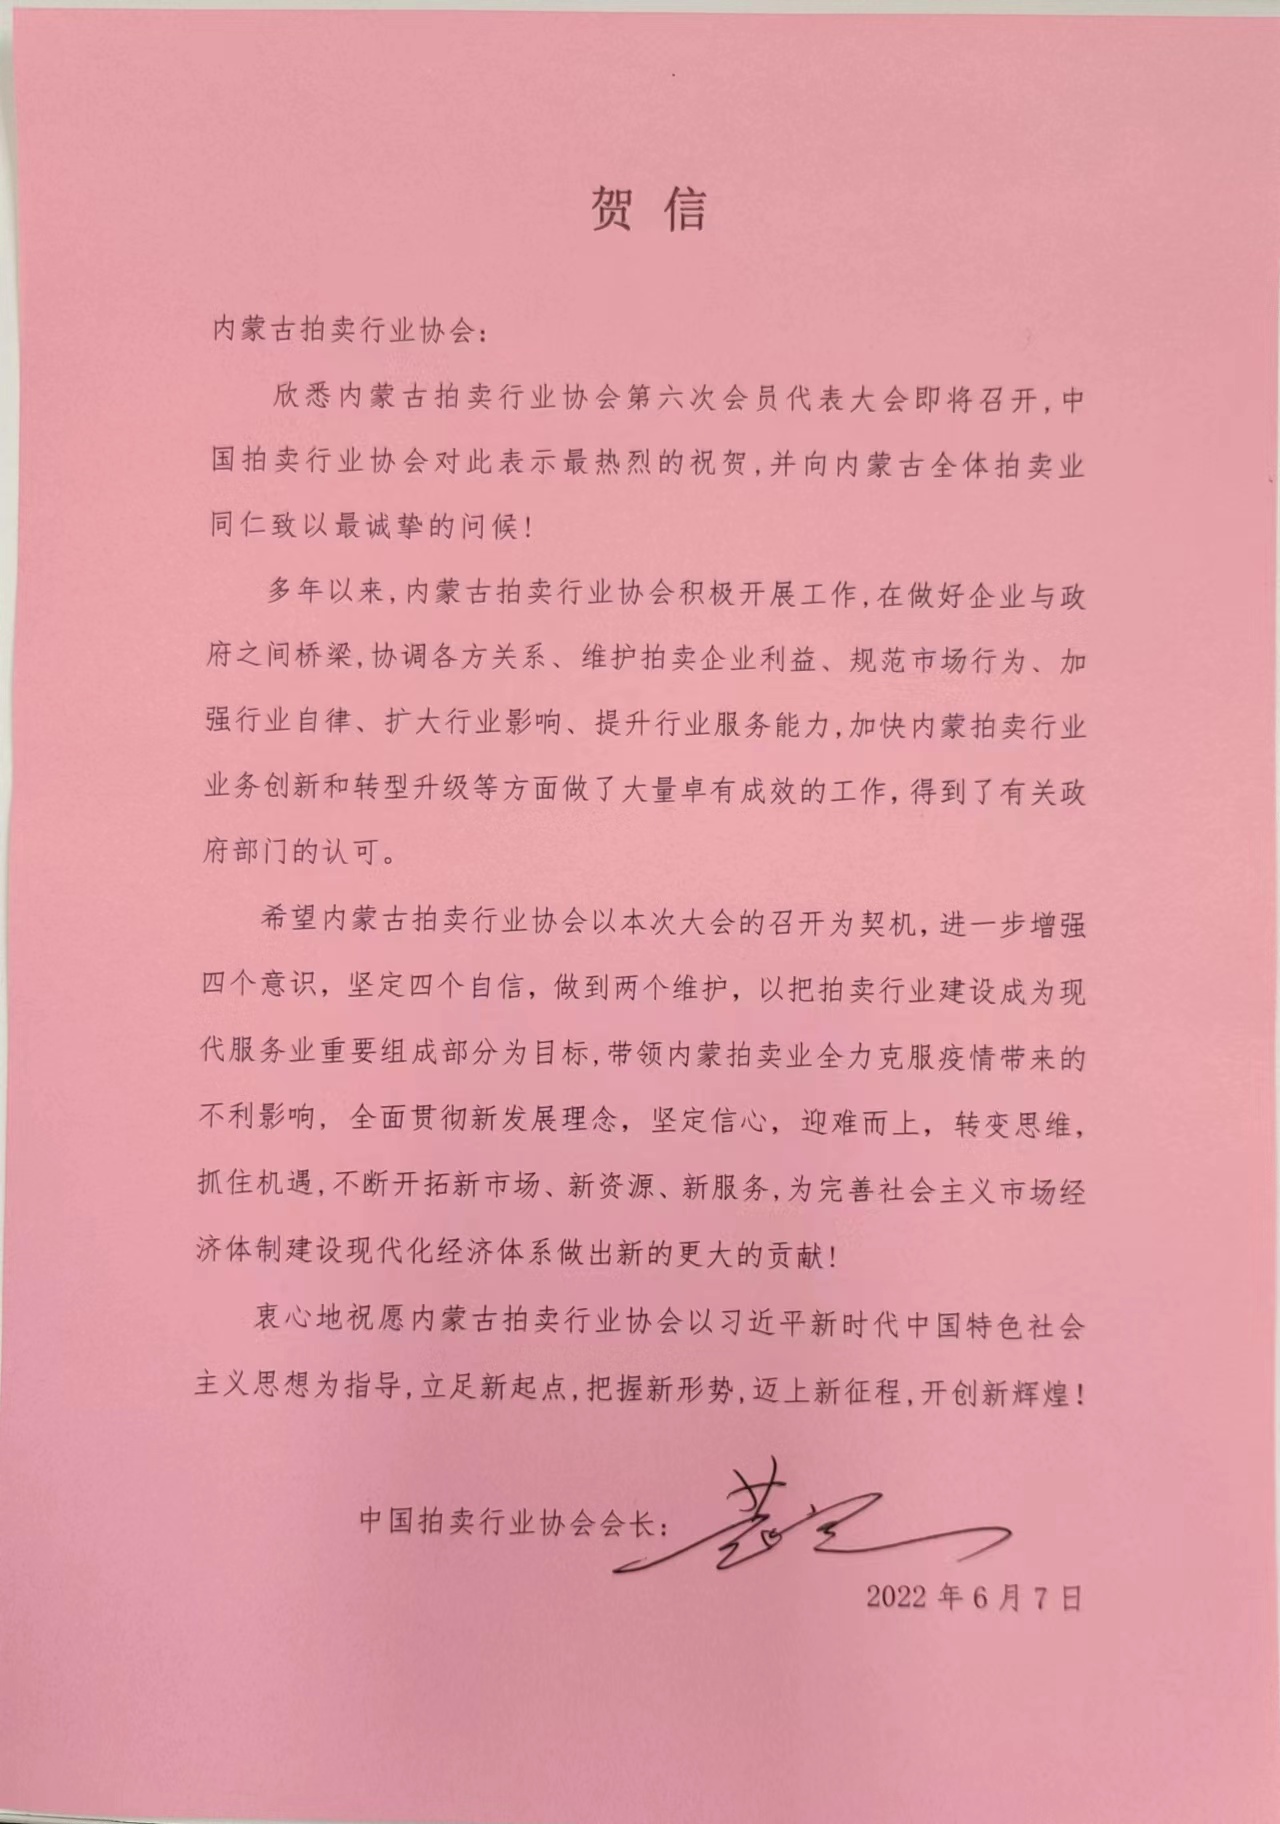 贺信
内蒙古拍卖行业协会：
欣悉内蒙古拍卖行业协会第六次会员代表大会即将召开,中
国拍卖行业协会对此表示最热烈的祝贺,并向内蒙古全体拍卖业
同仁致以最诚挚的问候!
多年以来,内蒙古拍卖行业协会积极开展工作,在做好企业与政
府之间桥梁,协调各方关系、维护拍卖企业利益、规范市场行为、加
强行业自律、扩大行业影响、提升行业服务能力,加快内蒙拍卖行业
业务创新和转型升级等方面做了大量卓有成效的工作，得到了有关政
府部门的认可。
希望内蒙古拍卖行业协会以本次大会的召开为契机，进一步增强
四个意识，坚定四个自信，做到两个维护，以把拍卖行业建设成为现
代服务业重要组成部分为目标,带领内蒙拍卖业全力克服疫情带来的
不利影响，全面贯彻新发展理念，坚定信心，迎难而上，转变思维，
抓住机遇,不断开拓新市场、新资源、新服务,为完善社会主义市场经
济体制建设现代化经济体系做出新的更大的贡献!
衷心地祝愿内蒙古拍卖行业协会以习近平新时代中国特色社会
主义思想为指导,立足新起点,把握新形势,迈上新征程,开创新辉煌!
中国拍卖行业协会会长：
2022 年 6 月 7 日